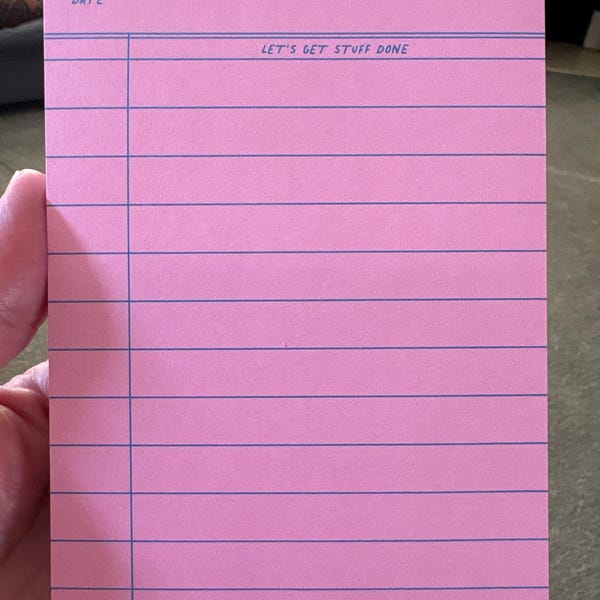 DATE
LET'S GET STUFF DONE